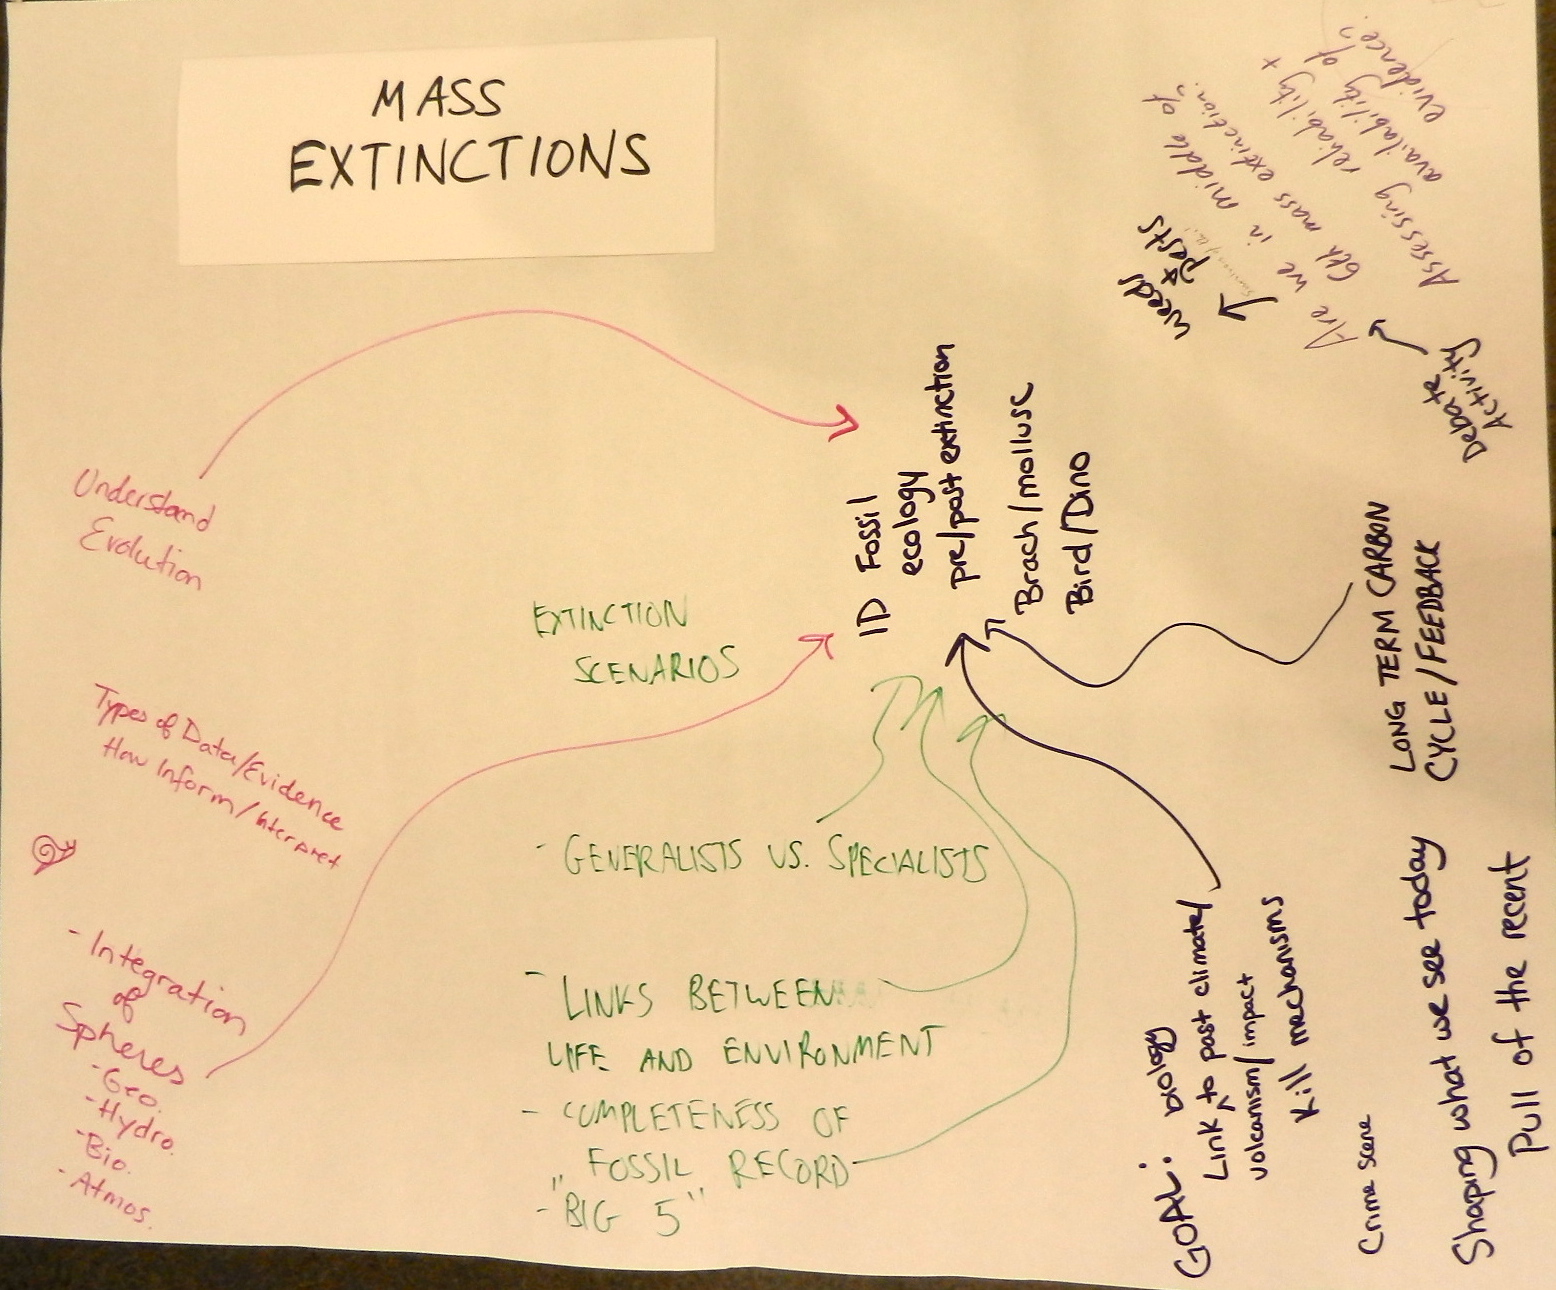 MASS
EXTINCTIONS
Understand
Evolution
Types of Data/Evidence
How Inform/Interpret
- Integration
of
Spheres
- Geo.
- Hydro.
- Bio.
- Atmos.
EXTINCTION
SCENARIOS
- GENERALISTS VS. SPECIALISTS
- LINKS BETWEEN
LIFE AND ENVIRONMENT
- COMPLETENESS OF
FOSSIL RECORD
- "BIG 5"
ID Fossil
ecology
pre/post extinction
Brach/mollusc
Bird/Dino
weeds
& pests
Are we in middle of
6th mass extinction?
Assessing reliability +
availability of
evidence?
Debate
Activity
LONG TERM CARBON
CYCLE/FEEDBACK
GOAL: biology
Link ^ to past climate/
volcanism/impact
Kill mechanisms
Crime scene
Shaping what we see today
Pull of the recent